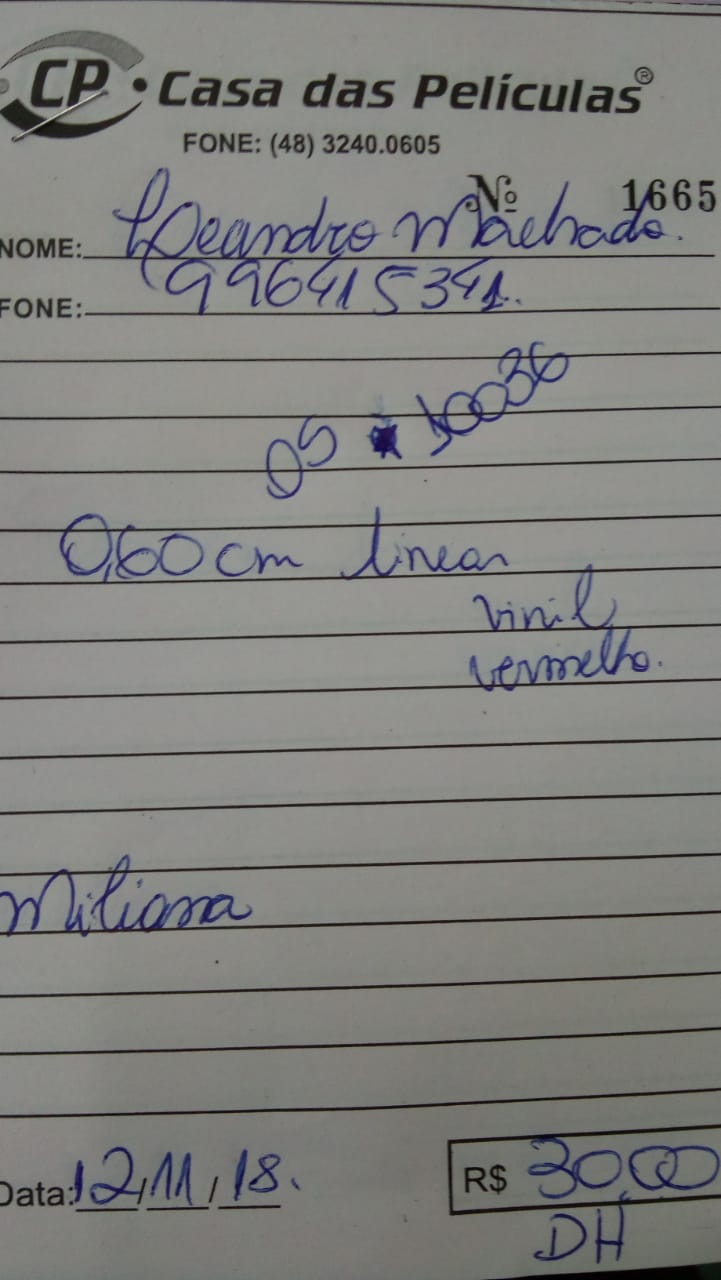 CP • Casa das Películas®
FONE: (48) 3240.0605
Nº 1665
NOME: Leandro Machado.
FONE: 996415341.
OS 10036
0,60 cm linear
vinil
vermelho.
Miliana
Data: 12/11/18.
R$ 30,00
DH